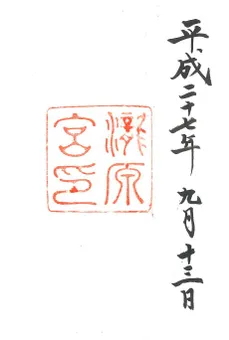 平成二十七年九月十三日
瀧原
宮印